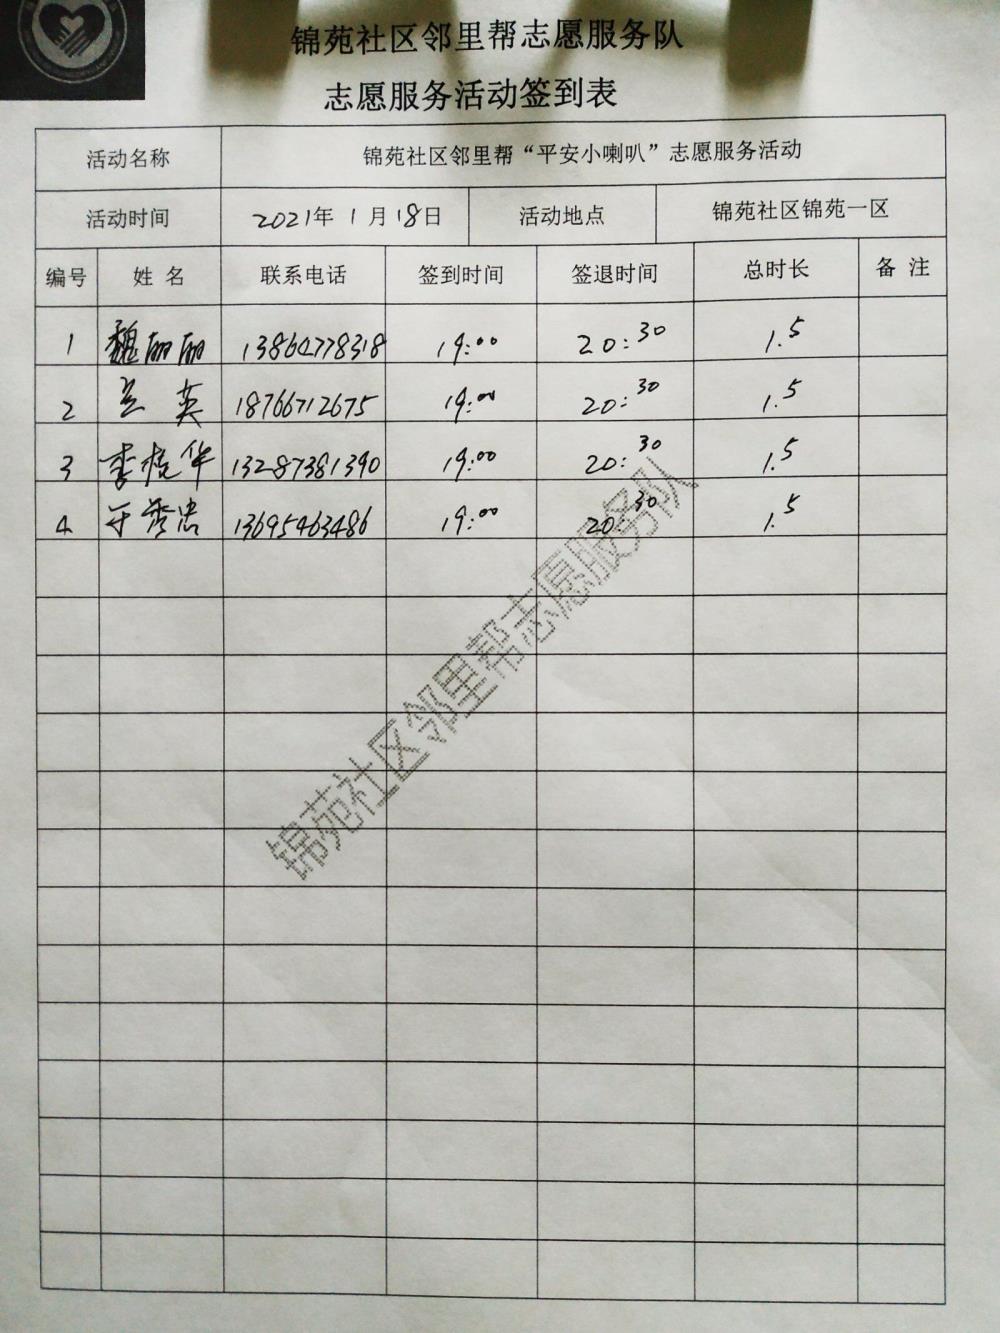 锦苑社区邻里帮志愿服务队
志愿服务活动签到表
活动名称 锦苑社区邻里帮“平安小喇叭”志愿服务活动
活动时间 2021年 1月 18日 活动地点 锦苑社区锦苑一区
编号 姓 名 联系电话 签到时间 签退时间 总时长 备 注
1 魏丽丽 13864778318 19:00 20:30 1.5
2 兰英 18766712675 19:00 20:30 1.5
3 李晓华 13287381390 19:00 20:30 1.5
4 于秀忠 13695463486 19:00 20:30 1.5
锦苑社区邻里帮志愿服务队